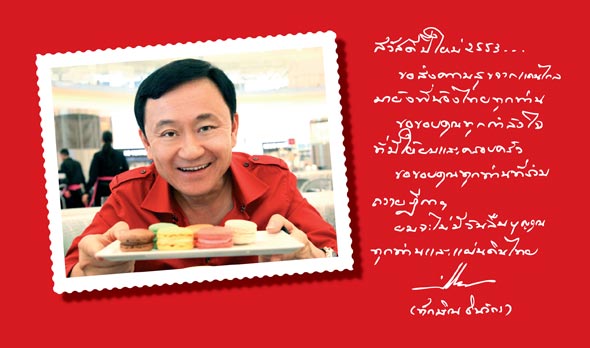 สวัสดีปีใหม่ 2553...
ขอส่งความสุขจากแดนไกล
มายังพี่น้องไทยทุกท่าน
ขอขอบคุณทุกกำลังใจ
ที่มีให้ผมและครอบครัว
ขอขอบคุณทุกท่านที่ร่วม
ถวายฎีกาฯ
ผมจะไม่มีวันลืมบุญคุณ
ทุกท่านและแผ่นดินไทย
(ทักษิณ ชินวัตร)